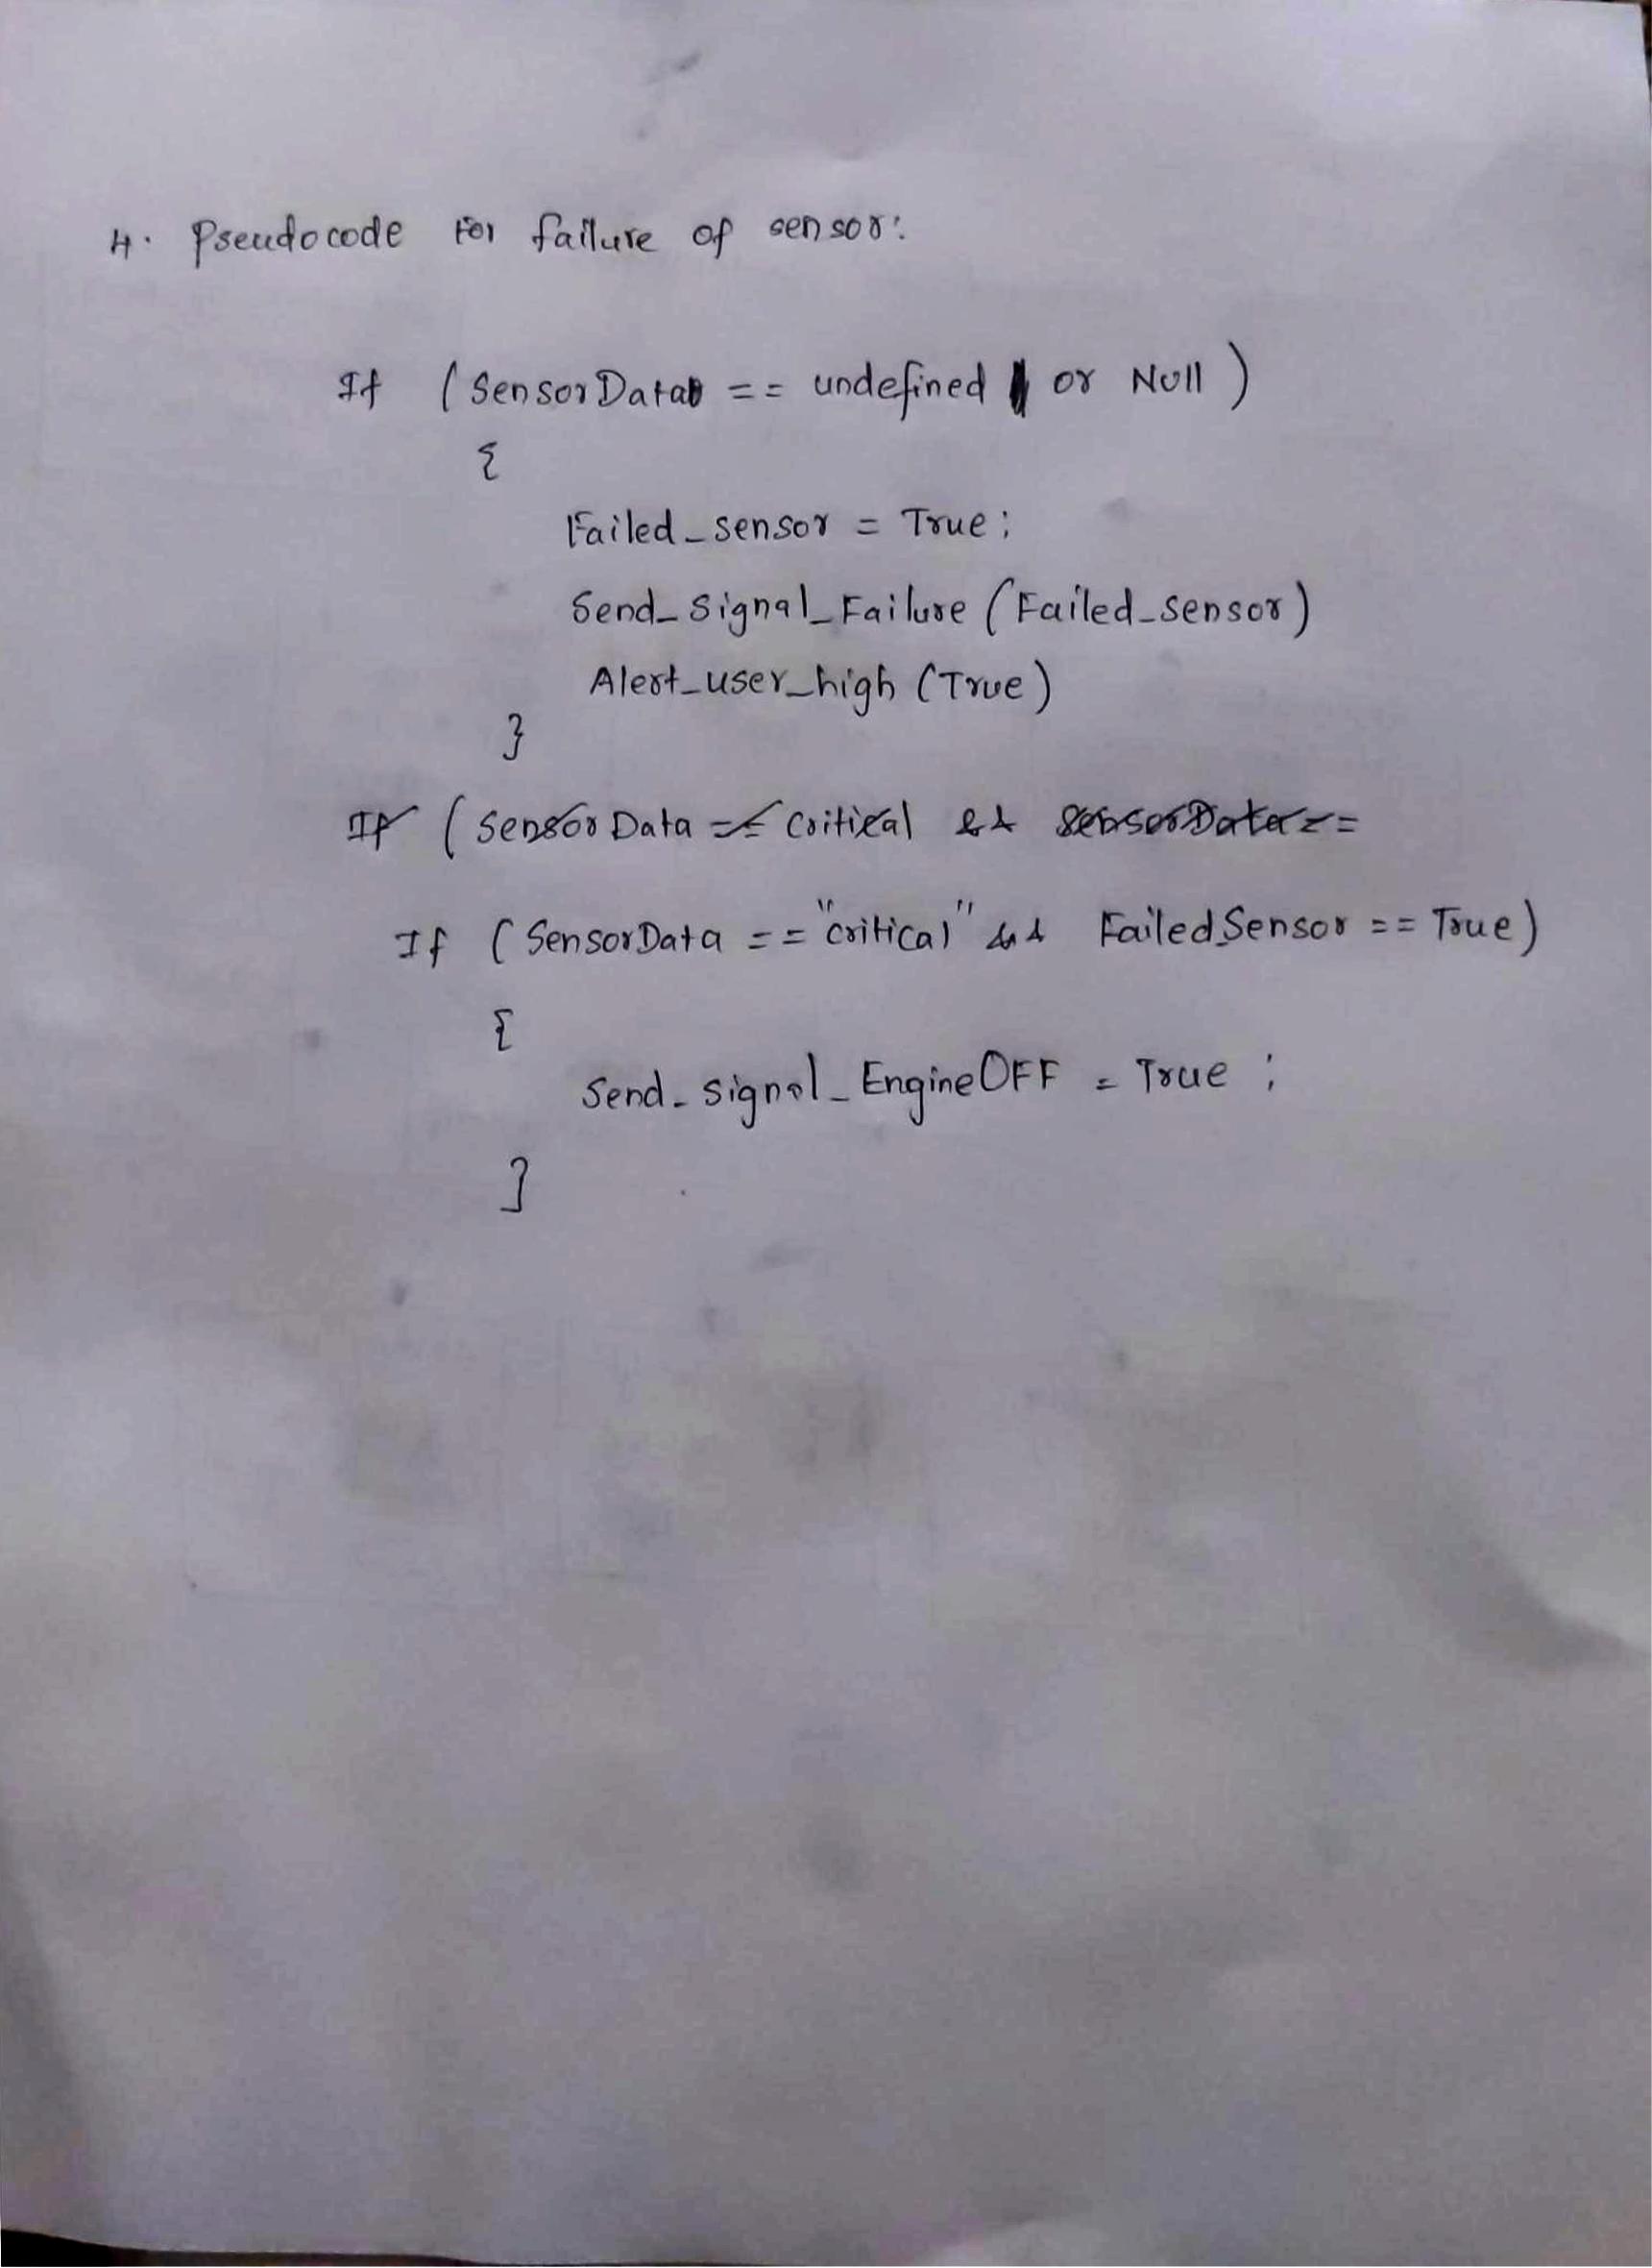 4. Pseudocode for failure of sensor:
If (SensorData == undefined or Null)
{
Failed_sensor = True;
Send_Signal_Failure (Failed_sensor)
Alert_user_high (True)
}
If (Sensor Data == Critical && SensorData ==
If (SensorData == "critical" && Failed_Sensor == True)
{
Send_signal_EngineOFF = True ;
}